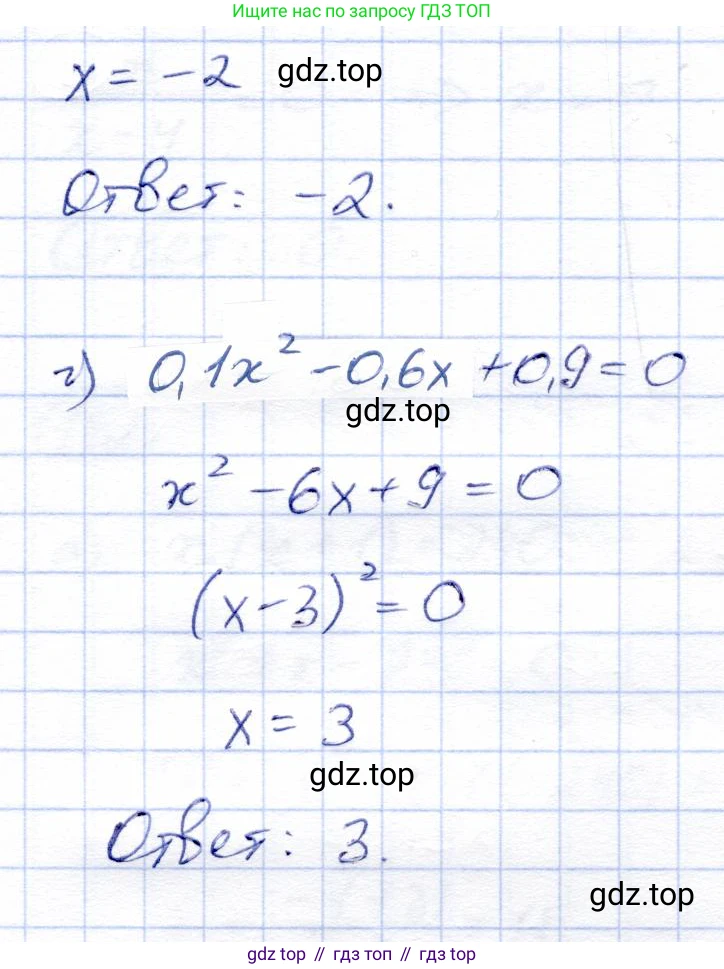 Ищите нас по запросу ГДЗ ТОП
x = -2 gdz.top
Ответ: -2.
г) 0,1x² - 0,6x + 0,9 = 0
gdz.top
x² - 6x + 9 = 0
(x - 3)² = 0
x = 3
gdz.top
Ответ: 3.
gdz.top
gdz top // гдз топ // gdz top